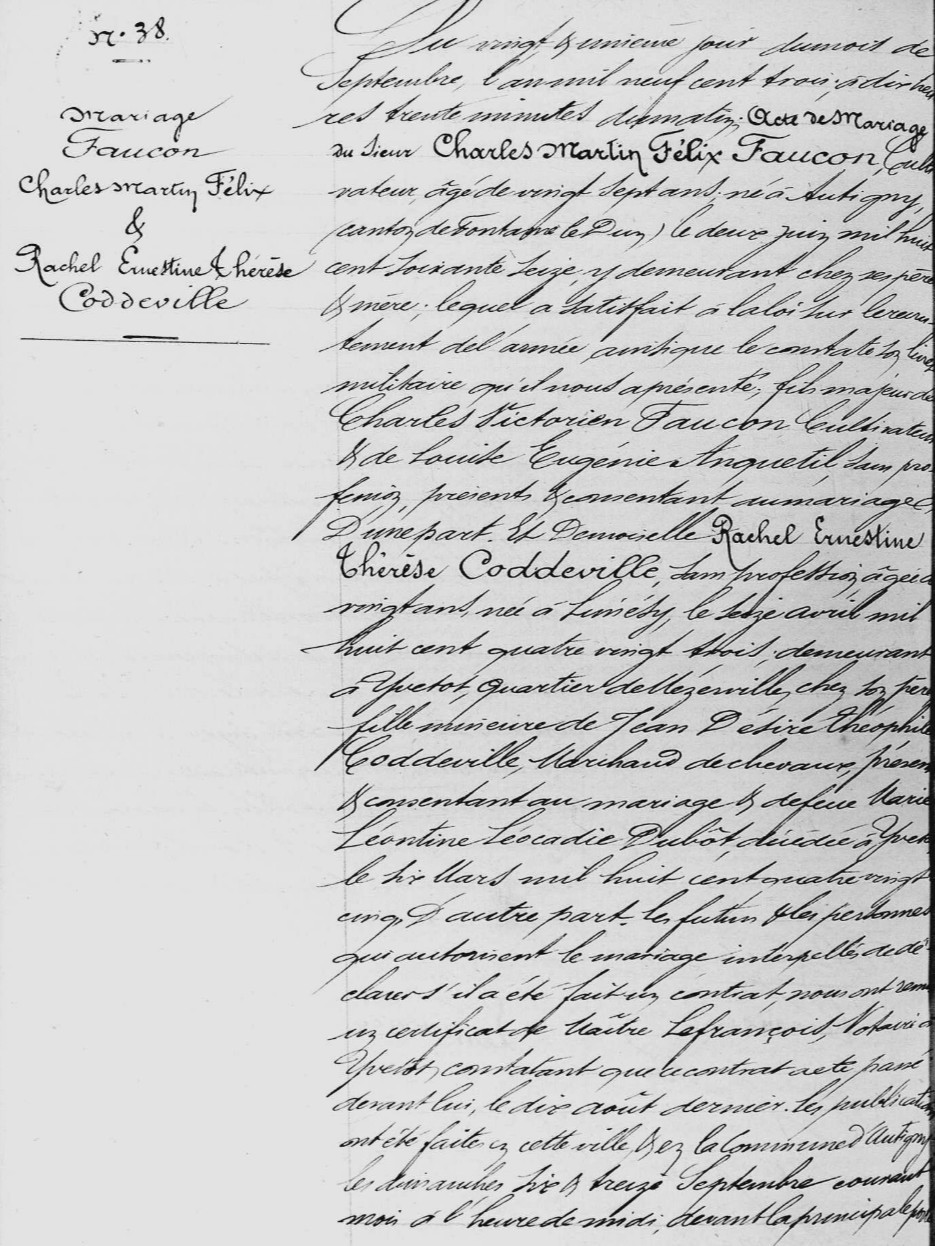 N° 38.
Mariage
Faucon
Charles Martin Félix
&
Rachel Ernestine Thérèse
Coddeville
Du vingt & unième jour du mois de
Septembre, l'an mil neuf cent trois, à dix heu
res trente minutes du matin. Acte de Mariage
du Sieur Charles Martin Félix Faucon, Culti
vateur, âgé de vingt sept ans, né à Autigny,
(canton de Fontaine le Dun) le deux juin mil huit
cent soixante seize, y demeurant chez ses père
& mère; lequel a satisfait à la loi sur le recru
tement de l'armée ainsi que le constate son livret
militaire qu'il nous a présenté; fils majeur de
Charles Victorien Faucon Cultivateur
& de Louise Eugénie Anquetil sans pro
fession, présents & consentant au mariage,
D'une part. Et Demoiselle Rachel Ernestine
Thérèse Coddeville, sans profession, âgée de
vingt ans, née à Limésy, le seize avril mil
huit cent quatre vingt trois, demeurant
à Yvetot, quartier de Rézerville, chez son père
fille mineure de Jean Désiré Théophile
Coddeville, Marchand de chevaux, présent
& consentant au mariage & de feue Marie
Léontine Léocadie Dubôt, décédée à Yvetot
le six Mars mil huit cent quatre vingt
cinq, D'autre part. Les futurs & les personnes
qui autorisent le mariage interpellés de dé-
clarer s'il a été fait un contrat, nous ont remis
un certificat de Maître Lefrançois, Notaire à
Yvetot, constatant que ce contrat a été passé
devant lui, le dix août dernier. Les publications
ont été faites en cette ville, & en la Commune d'Autigny
les dimanches six & treize Septembre courant
mois à l'heure de midi, devant la principale porte